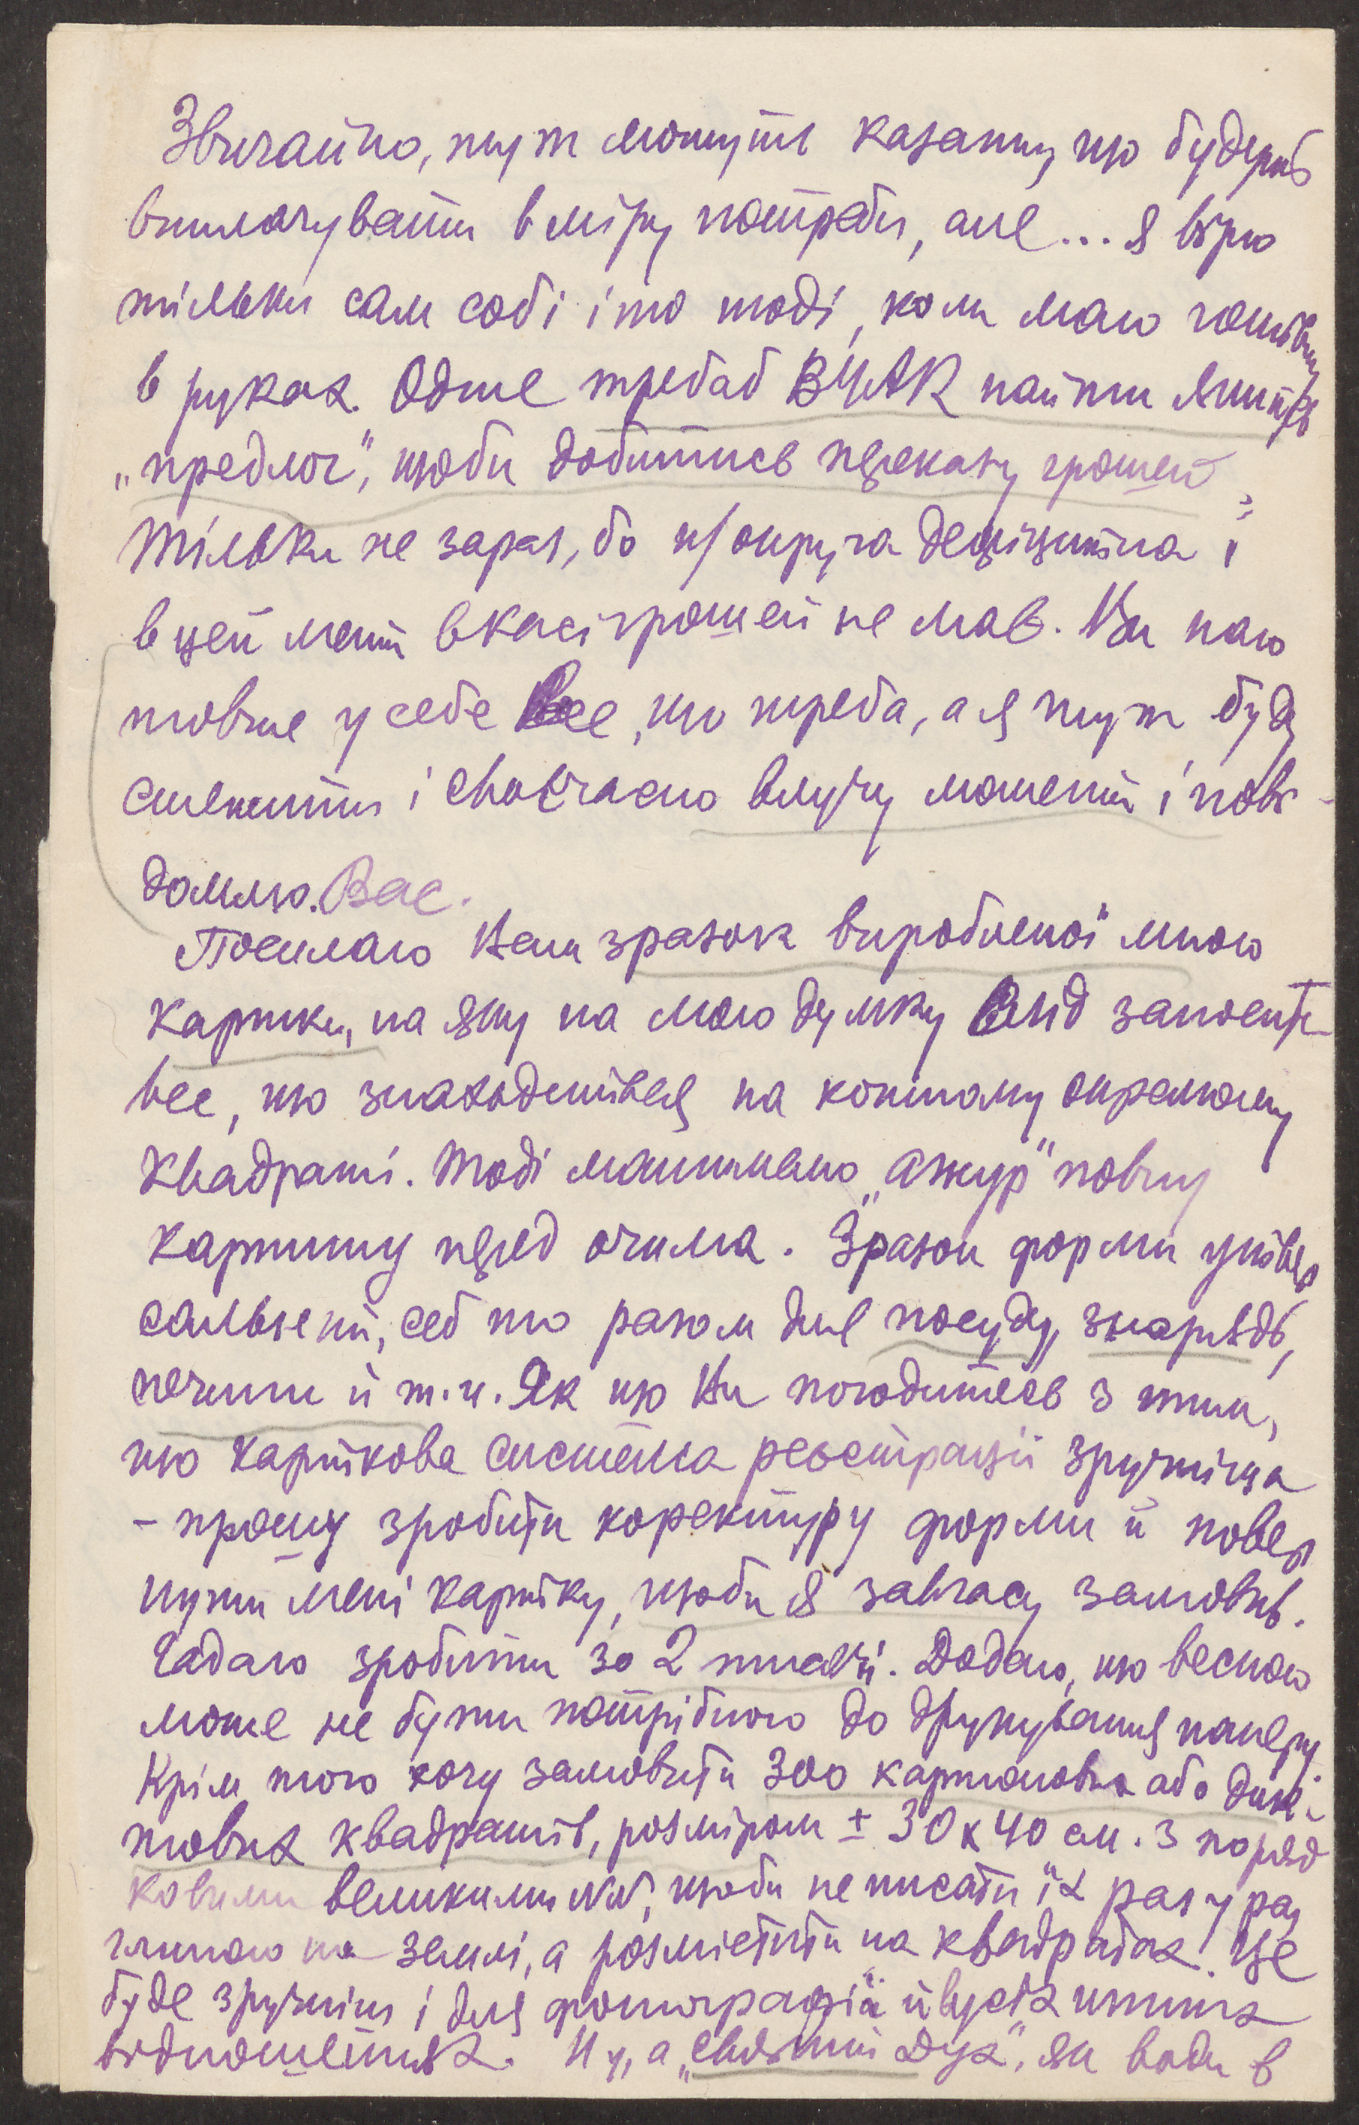 Звичайно, тут можуть казати, що будуть
виплачувати в міру потреби, але... я вірю
тільки сам собі і то тоді, коли маю готівку
в руках. Отже треба б ВУАК найти якийсь
„предлог", щоби добитись переказу грошей
тільки не зараз, бо н/округа дефіцитна і
в цей мент в касі грошей не має. Ви наго
товте у себе все, що треба, а я тут буду
стежити і своєчасно влучу момент і пові-
домлю Вас.
Посилаю Вам зразок виробленої мною
картки, на яку на мою думку слід заносити
все, що знаходиться на кожному окремому
квадраті. Тоді матимемо „ажур" повну
картину перед очима. Зразок форми універ
сальний, себто разом для посуду, знарядь,
печини й т.и. Як що Ви погодитесь з тим,
що карткова система реєстрації зручніша
– прошу зробити коректуру форми й повер
нути мені картку, щоби я завчасу замовив.
Гадаю зробити зо 2 тисячі. Додаю, що весною
може не бути потрібного до друкування паперу.
Крім того хочу замовити 300 картонових або дик-
тових квадратів, розміром ± 30 x 40 см. з поряд
ковими великими №№, щоби не писати їх раз у раз
глиною на землі, а розмістити на квадратах. Це
буде зручніш і для фотографії й в усіх инших
відношеннях. Ну, а „святий дух", як води в